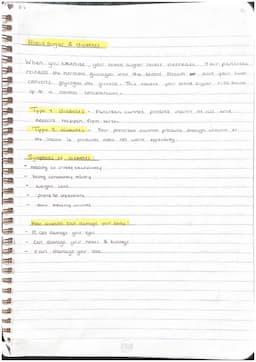 Blood sugar & diabetes
When you exercise, your blood sugar levels decrease. Your pancreas
release the hormone glucagon into the blood stream and your liver
converts glycogen into glucose. This causes your blood sugar to rise back
up to a normal concentration.
Type 1 diabetes - Pancreas cannot produce insulin at all and
happen from birth.
Type 2 diabetes - Your pancreas cannot produce enough insulin or
the insulin it produces does not work effectively.
Symptoms of diabetes
- needing to urinate excessively
- being constantly thirsty
- weight loss
- prone to infections
- slow healing wounds
How diabetes can damage your body!
- It can damage your eyes
- Can damage your nerves & kidneys
- It can damage your